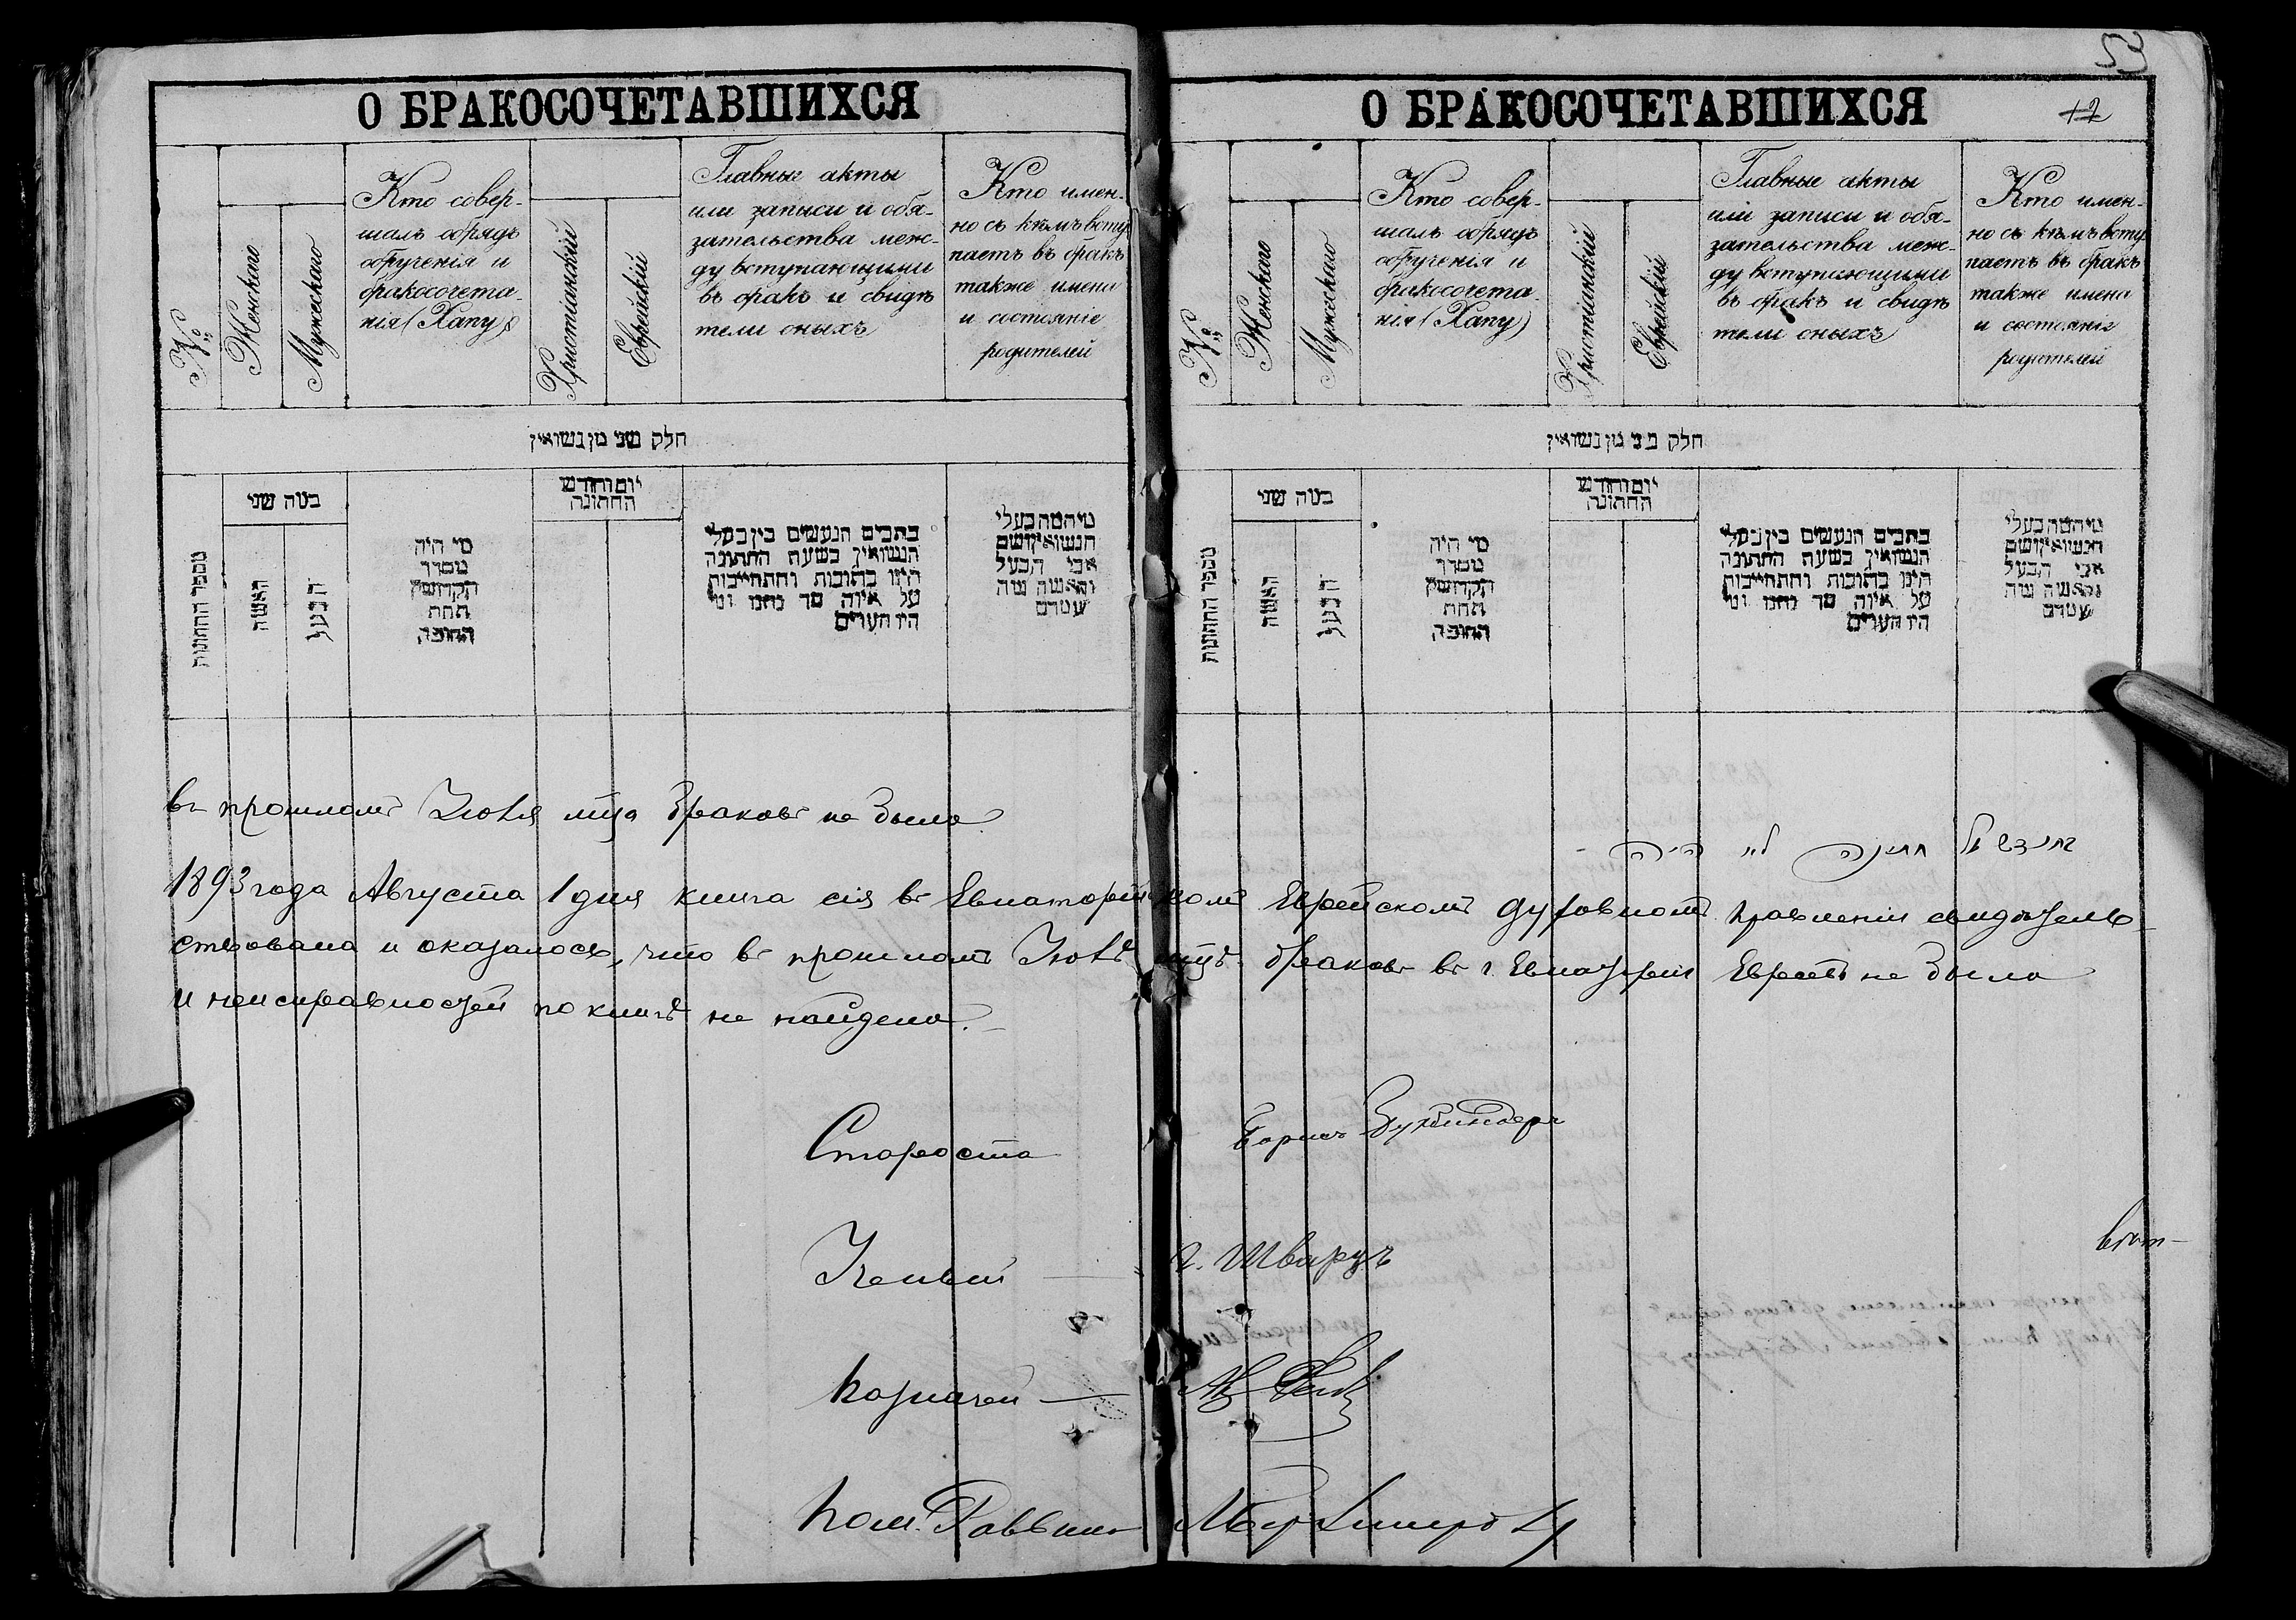 53
О БРАКОСОЧЕТАВШИХСЯ
№
Женскаго
Мужескаго
Кто совер-
шалъ обрядъ
обрученія и
бракосочета-
нія (Хапу)
Христіанскій
Еврейскій
Главные акты
или записи и обя-
зательства меж-
ду вступающими
въ бракъ и свидѣ
тели оныхъ
Кто имен-
но съ кѣмъ всту
паетъ въ бракъ
также имена
и состояніе
родителей
חלק שני מן נשואין
מספר החתונות
במה שני
האשה
הבעל
מי היה
מסדר
הקדושין
תחת
החופה
יום וחודש
החתונה
בתבים הנעשים בין בעלי
הנשואין בשעת החתונה
היינו כתובות והתחייבות
על איזה סך נתנו ומי
היו העדים
מי המה בעלי
הנשואין ושם
אבי הבעל
והאשה ומה
שטרם
О БРАКОСОЧЕТАВШИХСЯ
12
№
Женскаго
Мужескаго
Кто совер-
шалъ обрядъ
обрученія и
бракосочета-
нія (Хапу)
Христіанскій
Еврейскій
Главные акты
или записи и обя-
зательства меж-
ду вступающими
въ бракъ и свидѣ
тели оныхъ
Кто имен-
но съ кѣмъ всту
паетъ въ бракъ
также имена
и состояніе
родителей
חלק שני מן נשואין
מספר החתונות
במה שני
האשה
הבעל
מי היה
מסדר
הקדושין
תחת
החופה
יום וחודש
החתונה
בתבים הנעשים בין בעלי
הנשואין בשעת החתונה
היינו כתובות והתחייבות
על איזה סך נתנו ומי
היו העדים
מי המה בעלי
הנשואין ושם
אבי הבעל
והאשה ומה
שטרם
въ прошломъ Іюля мца браковъ не было
חתונה לא היה
1893 года Августа 1 дня книга сія въ Евпаторійскомъ Еврейскомъ духовномъ правленіи свидѣтель-
ствована и оказалось, что въ прошломъ Іюлѣ мцѣ браковъ въ г. Евпаторіи Евреевъ не было
и неисправностей по книгѣ не найдено.
Староста Борисъ Бухбиндеръ
Ученый — г. Шварцъ
Казначей —
Каз. Раввинъ